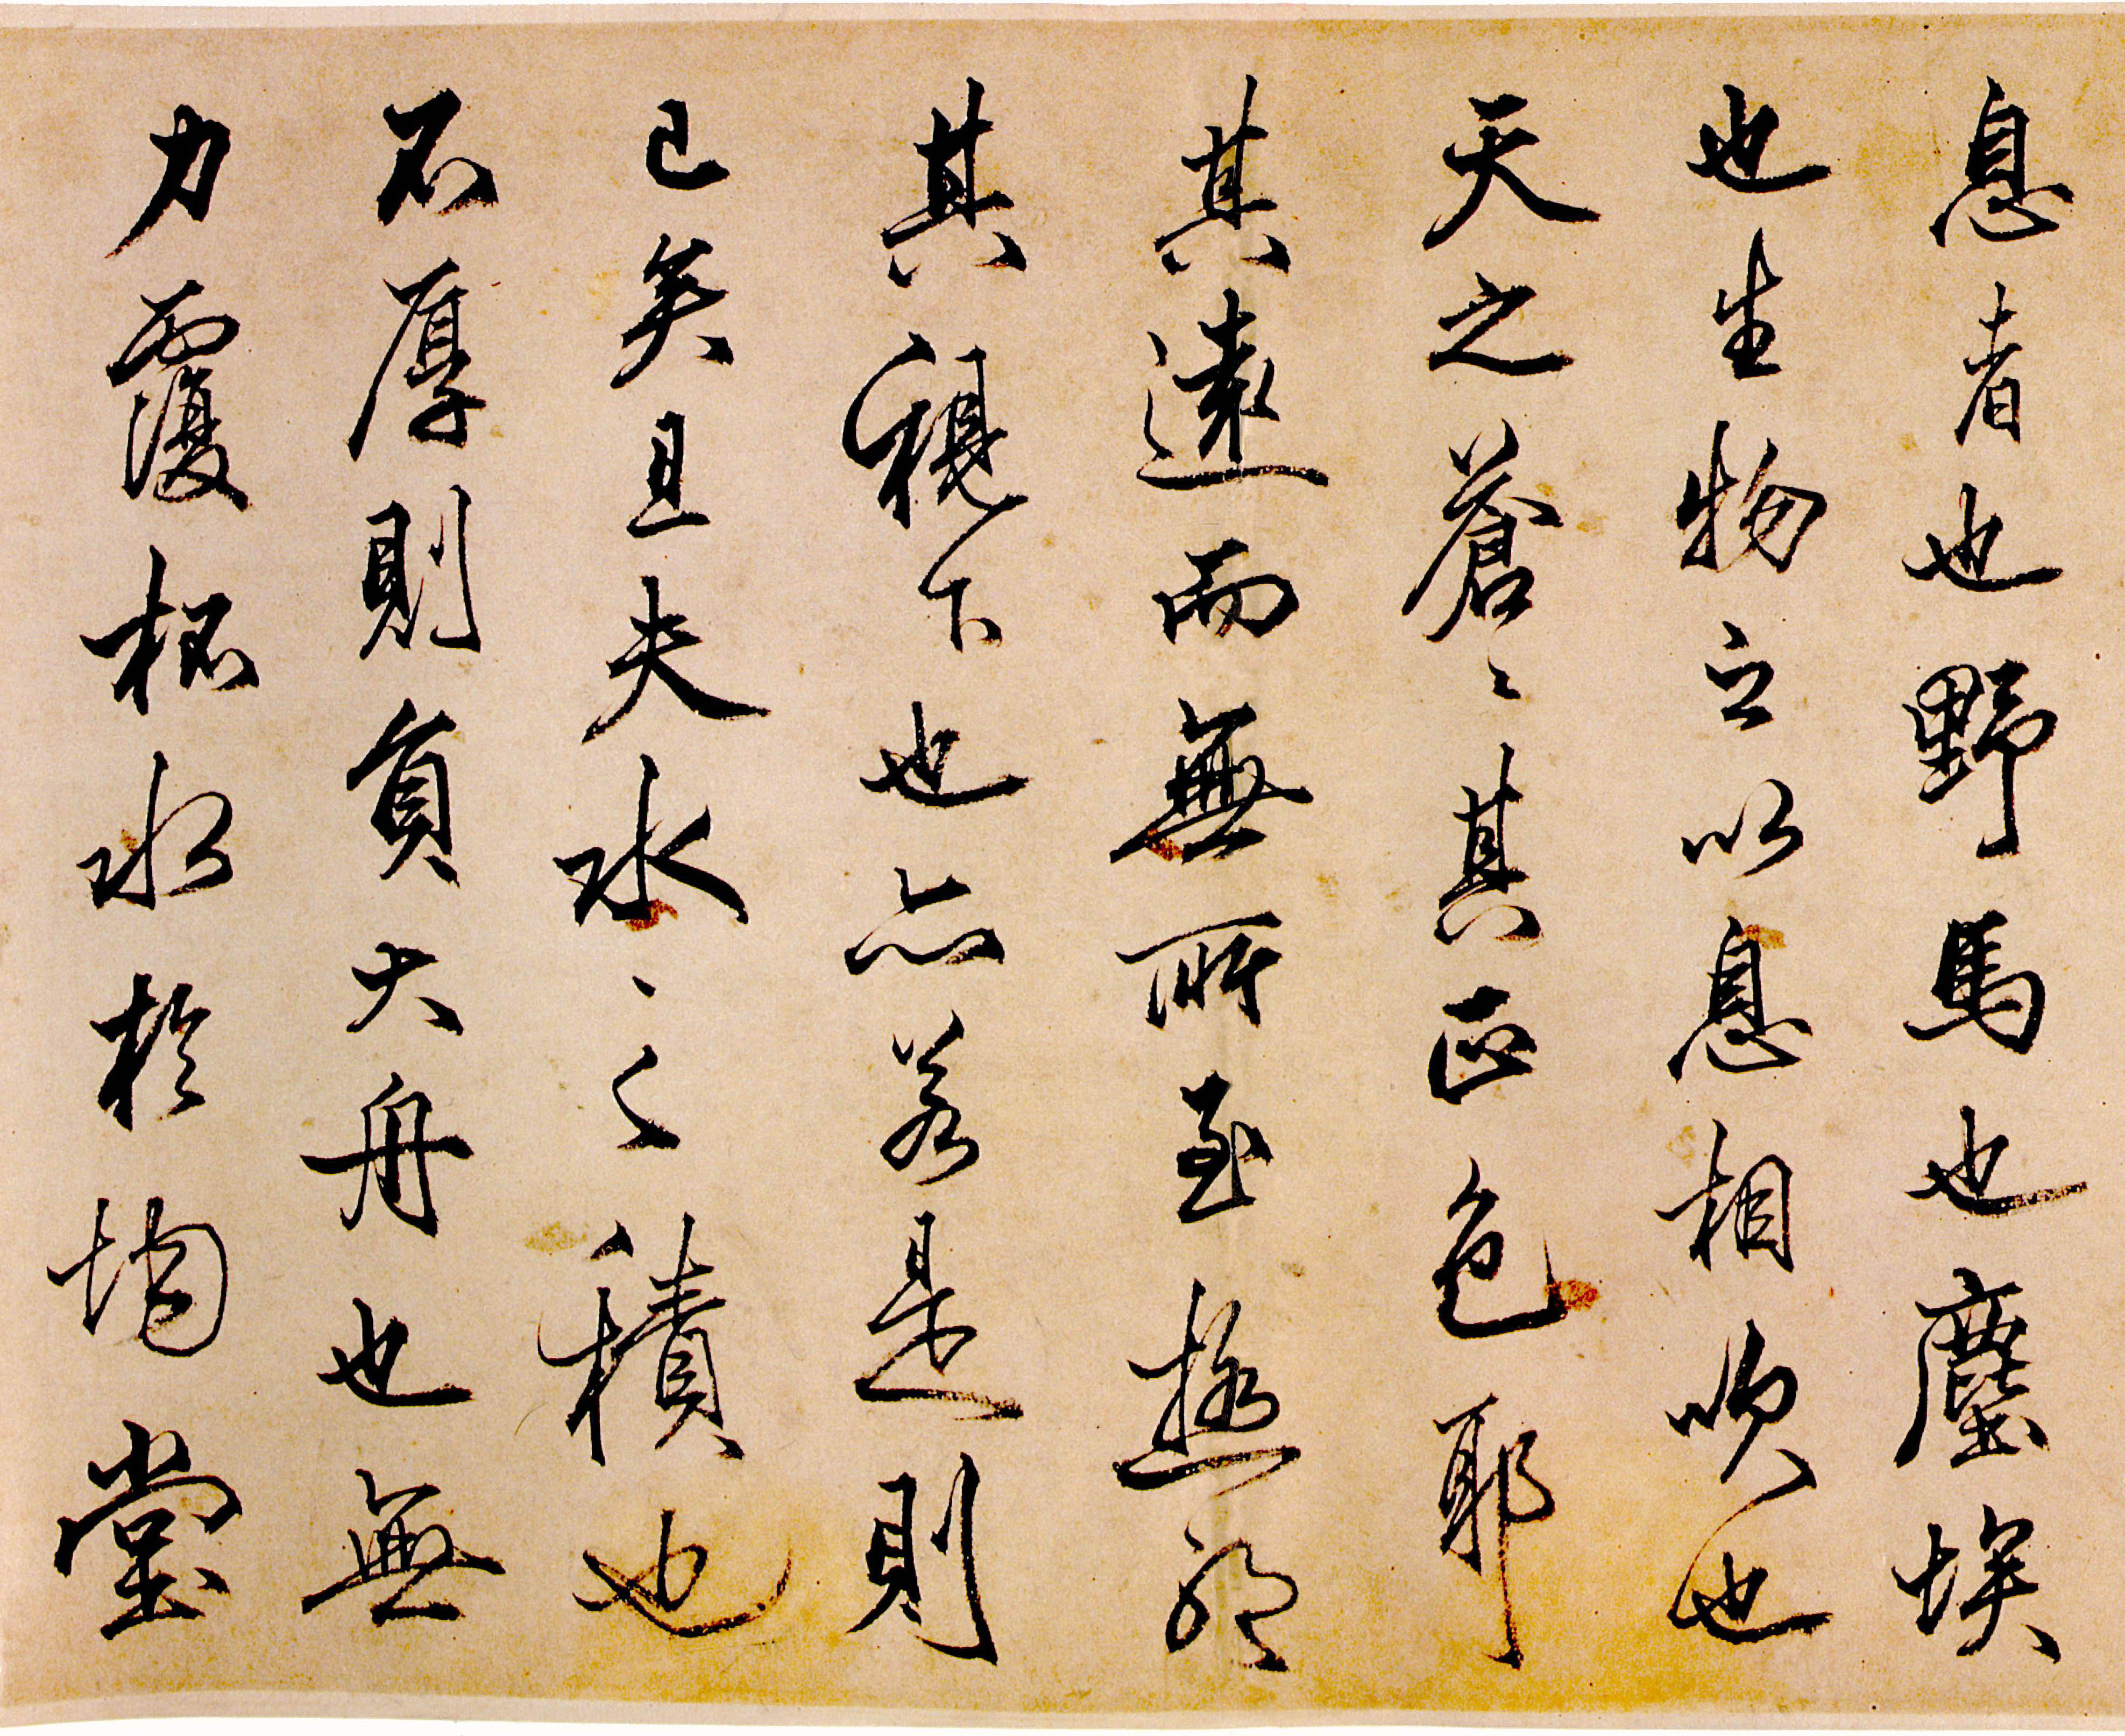 息者也野馬也塵埃
也生物之以息相吹也
天之蒼〻其正色耶
其遠而無所至極邪
其視下也亦若是則
已矣且夫水〻之積也
不厚則負大舟也無
力覆杯水於坳堂